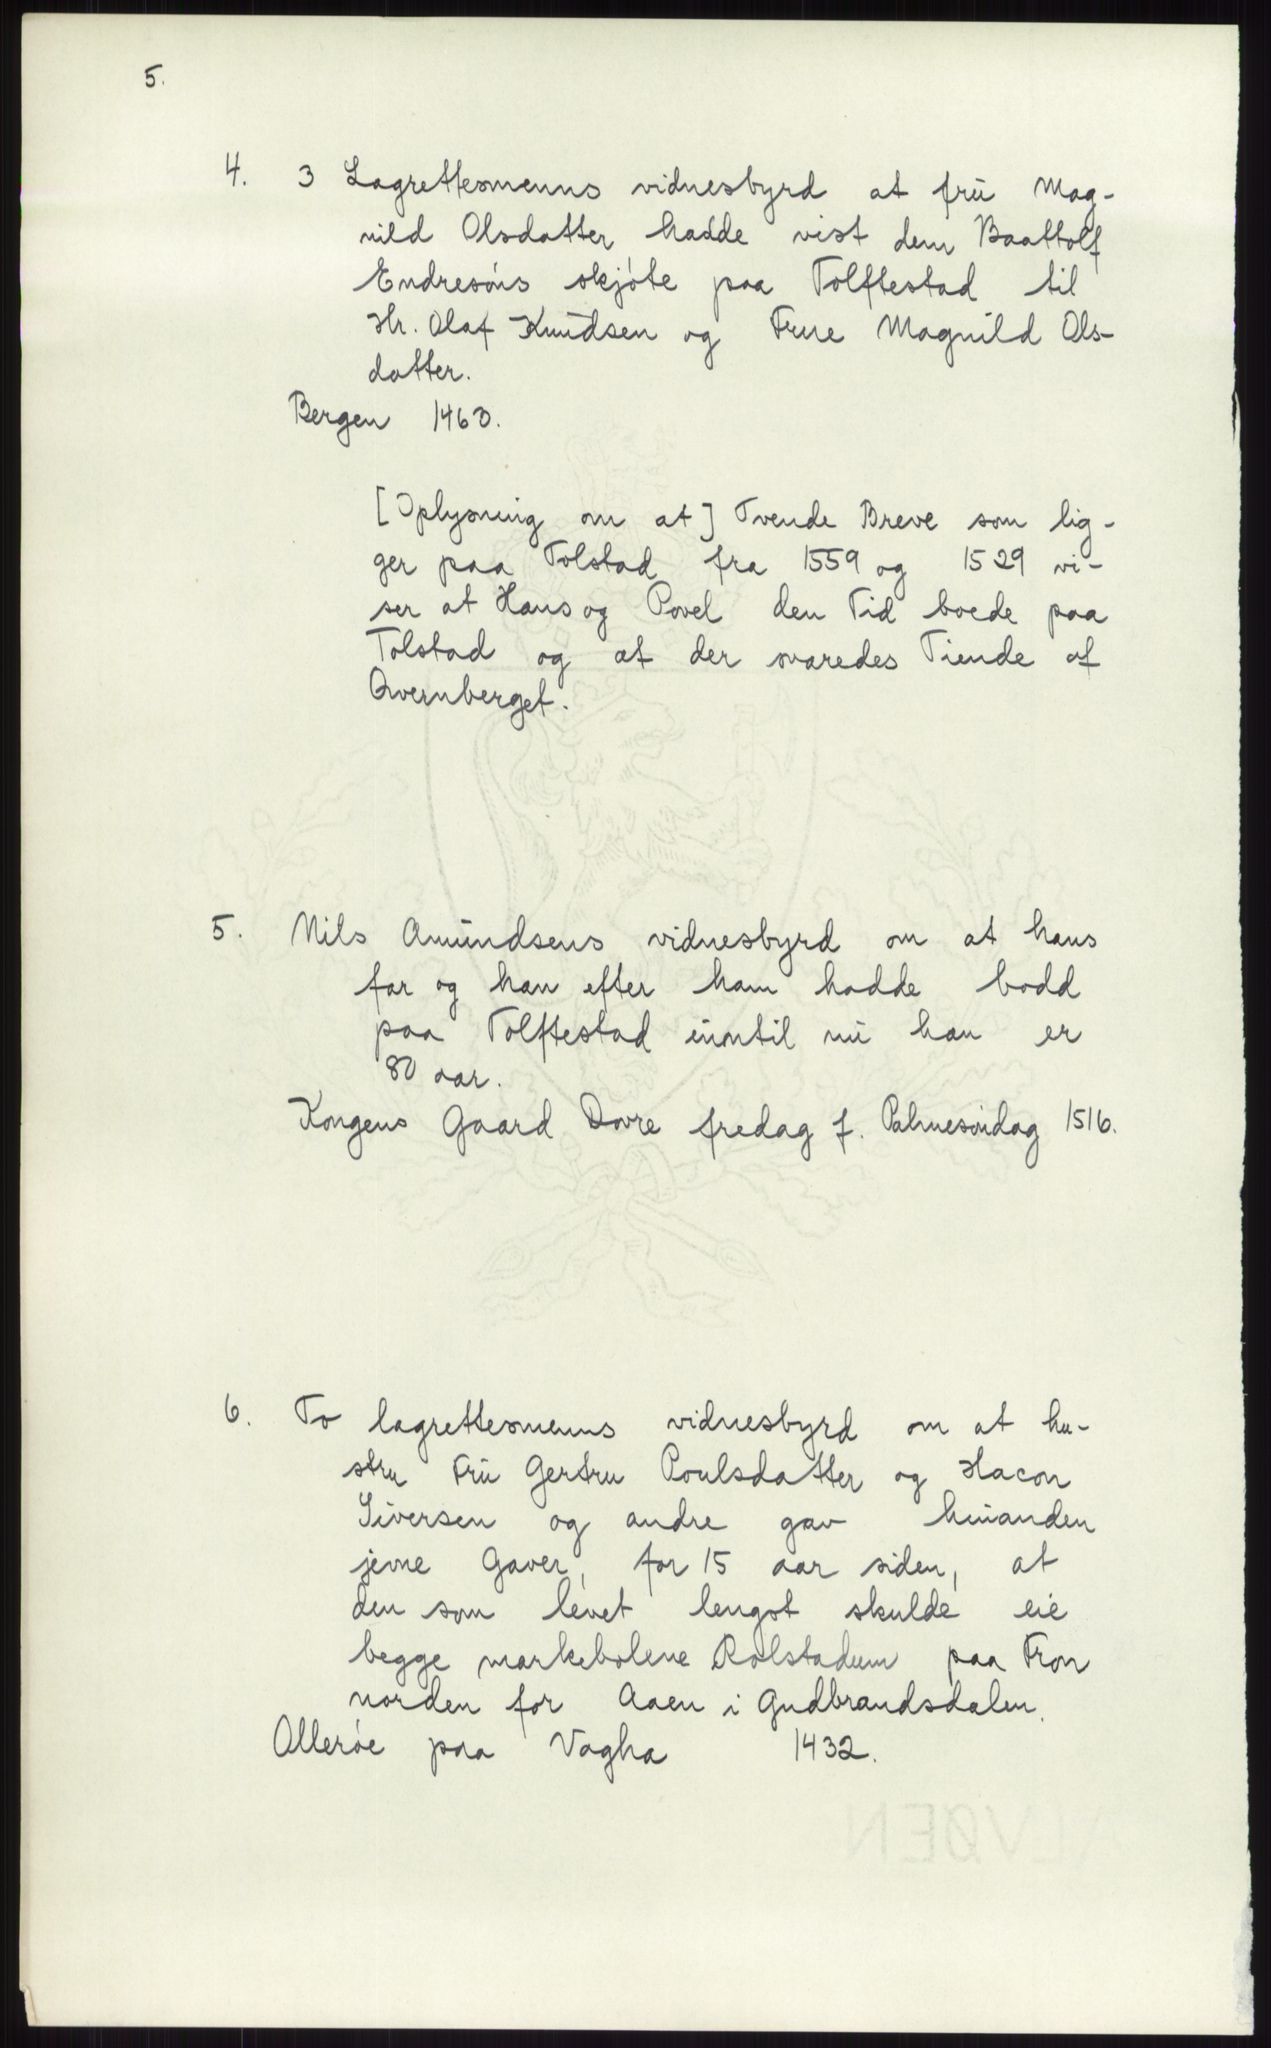 5.
4. 3 Lagrettesmenns vidnesbyrd at frŭ Mag-
nild Olsdatter hadde vist dem Baattolf
Endresóns skjóte paa Tolftestad til
Hr. Olaf Knŭdsen og Frue Magnild Ols-
datter.
Bergen 1463.
[Oplysning om at] Tvende Breve som lig-
ger paa Tolstad fra 1559 og 1529 vi-
ser at Hans og Povel den Tid boede paa
Tolstad og at der svaredes Tiende af
Qvernberget.
5. Nils Amŭndsens vidnesbyrd om at hans
far og han efter ham hadde bodd
paa Tolftestad ŭnntil nŭ han er
80 aar.
Kongens Gaard Dovre fredag f. Palmesóndag 1516.
6. To lagrettesmenns vidnesbyrd om at hu-
stru Frŭ Gertru Poulsdatter og Hacon
Siversen og andre gav hinanden
jevne Gaver, for 15 aar siden, at
den som levet lengst skulde eie
begge markebolene Rolstadum paa Fron
norden for Aaen i Gudbrandsdalen.
Olleróe paa Vagha 1432.
ALVØEN